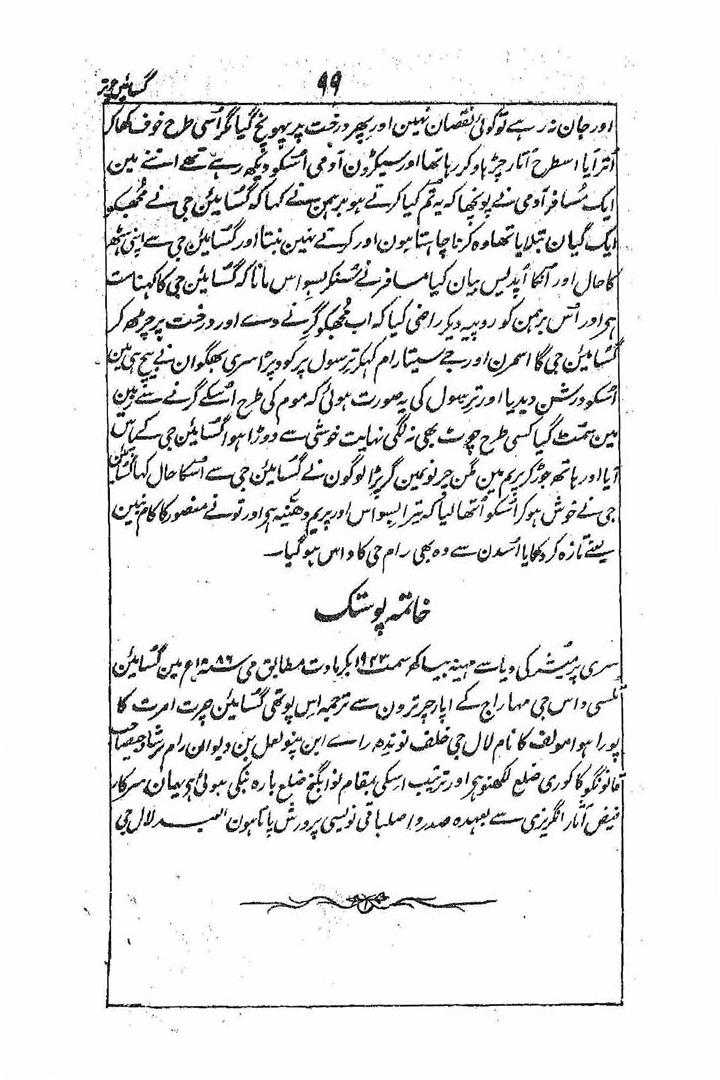 گسائین چرتر
۹۹
اور جان نہ رہے تو کوئی نقصان نہین اور پھر درخت پر پہونچ گیا مگر اُسی طرح خوف کھا کر
اُتر آیا اسطرح اُتار چڑھاو کر رہا تھا اور سیکڑون آدمی اُسکو دیکھ رہے تھے اتنے مین
ایک مُسافر آدمی نے پونچھا کہ یہ تم کیا کرتے ہو برہمن نے کہا کہ گُسائین جی نے مُجھکو
ایک گیان بتلایا تھا وہ کرنا چاہتا ہون اور کرتے نہین بنتا اور گسائین جی سے اپنی ہٹھ
کا حال اور اُنکا اُپدیس بیان کیا مسافر نے سُنکر بسواس مانا کہ گسائین جی کا کہنا ست
ہی اور اُس برہمن کو روپیہ دیکر راضی کیا کہ اب مُجھکو گرنے دے اور درخت پر چڑھ کر
گسائین جی کا اسمرن اور جے سیتا رام کہکر ترسول پر کود پڑا سری بھگوان نے بیچ ہی مین
اُسکو درشن دیدیا اور ترسول کی یہ صورت ہوئی کہ موم کی طرح اُسکے گرنے سے زمین
مین سمٹ گیا کسی طرح چوٹ بھی نہ لگی نہایت خوشی سے دوڑا ہوا گسائین جی کے پاس
آیا اور ہاتھ جوڑ کر پریم مین مگن چرنونمین گر پڑا لوگون نے گسائین جی سے اُسکا حال کہا گسائین
جی نے خوش ہو کر اُسکو اُٹھا لیا کہ تیرا بسواس اور پریم دھنیہ ہی اور تو نے منصور کا کام نہین
یعنے تازہ کر دکھایا اُسدن سے وہ بھی رام جی کا داس ہو گیا۔
خاتمہ پوستک
سری پرمیشر کی دیا سے مہینہ بیساکھ سمت ۱۹۴۳ بکرمادت مطابق مئی سنہ ۱۸۸۶ع مین گسائین
تلسی داس جی مہاراج کے اپار چرترون سے ترجمہ اس پوتھی گسائین چرت امرت کا
پورا ہوا مولف کا نام لال جی خلف نوندہ راے ابن بنولعل بن دیوان رام پرشاد صاحب
قانونگو کاکوری ضلع لکھنؤ ہی اور ترتیب اسکی بمقام نوابگنج ضلع بارہ بنکی ہوئی ہی یہان سرکار
فیض آثار انگریزی سے بعہدہ صدر واصلباقی نویسی پرورش پاتا ہون العبد لال جی